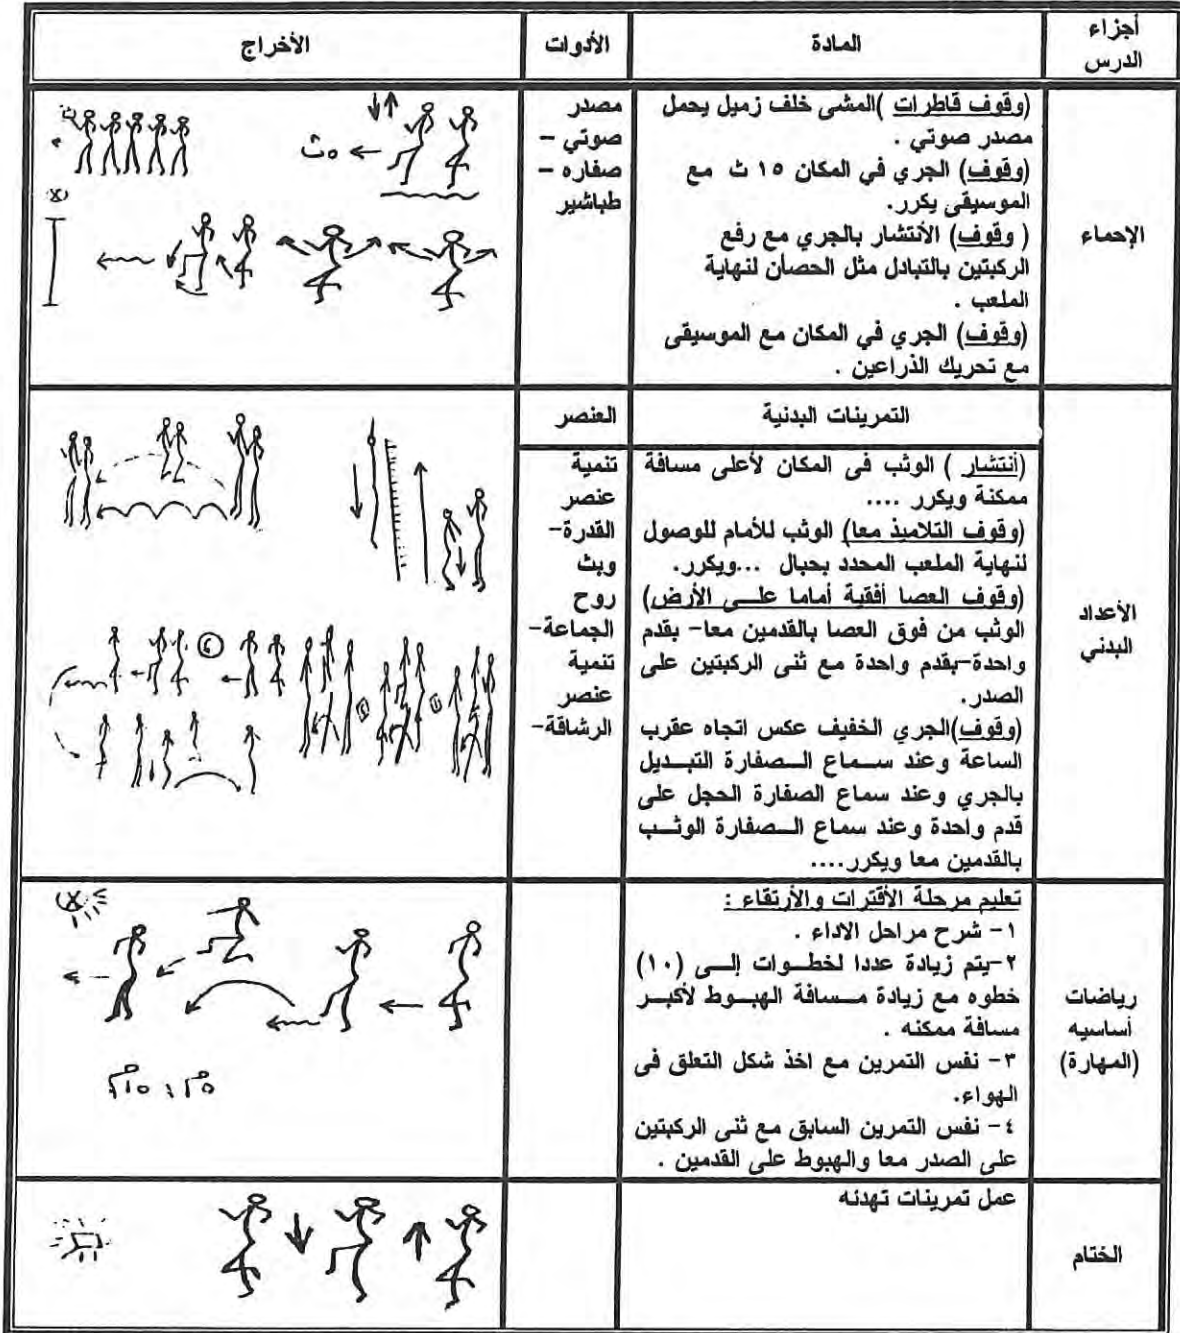 أجزاء
الدرس
المادة
الأدوات
الأخراج
الإحماء
(وقوف قاطرات )المشى خلف زميل يحمل
مصدر صوتي .
(وقوف) الجري في المكان ١٥ ث مع
الموسيقى يكرر.
( وقوف) الأنتشار بالجري مع رفع
الركبتين بالتبادل مثل الحصان لنهاية
الملعب .
(وقوف) الجري في المكان مع الموسيقى
مع تحريك الذراعين .
مصدر
صوتي –
صفاره –
طباشير
الأعداد
البدني
التمرينات البدنية
العنصر
(أنتشار ) الوثب فى المكان لأعلى مسافة
ممكنة ويكرر ....
(وقوف التلاميذ معا) الوثب للأمام للوصول
لنهاية الملعب المحدد بحبال ...ويكرر.
(وقوف العصا أفقية أماما على الأرض)
الوثب من فوق العصا بالقدمين معا- بقدم
واحدة-بقدم واحدة مع ثنى الركبتين على
الصدر.
(وقوف)الجري الخفيف عكس اتجاه عقرب
الساعة وعند سماع الصفارة التبديل
بالجري وعند سماع الصفارة الحجل على
قدم واحدة وعند سماع الصفارة الوثب
بالقدمين معا ويكرر....
تنمية
عنصر
القدرة-
وبث
روح
الجماعة-
تنمية
عنصر
الرشاقة-
رياضات
أساسيه
(المهارة)
تعليم مرحلة الأقترات والأرتقاء :
١- شرح مراحل الاداء .
٢-يتم زيادة عددا لخطوات إلى (١٠)
خطوه مع زيادة مسافة الهبوط لأكبر
مسافة ممكنه .
٣- نفس التمرين مع اخذ شكل التعلق فى
الهواء.
٤- نفس التمرين السابق مع ثنى الركبتين
على الصدر معا والهبوط على القدمين .
الختام
عمل تمرينات تهدئه